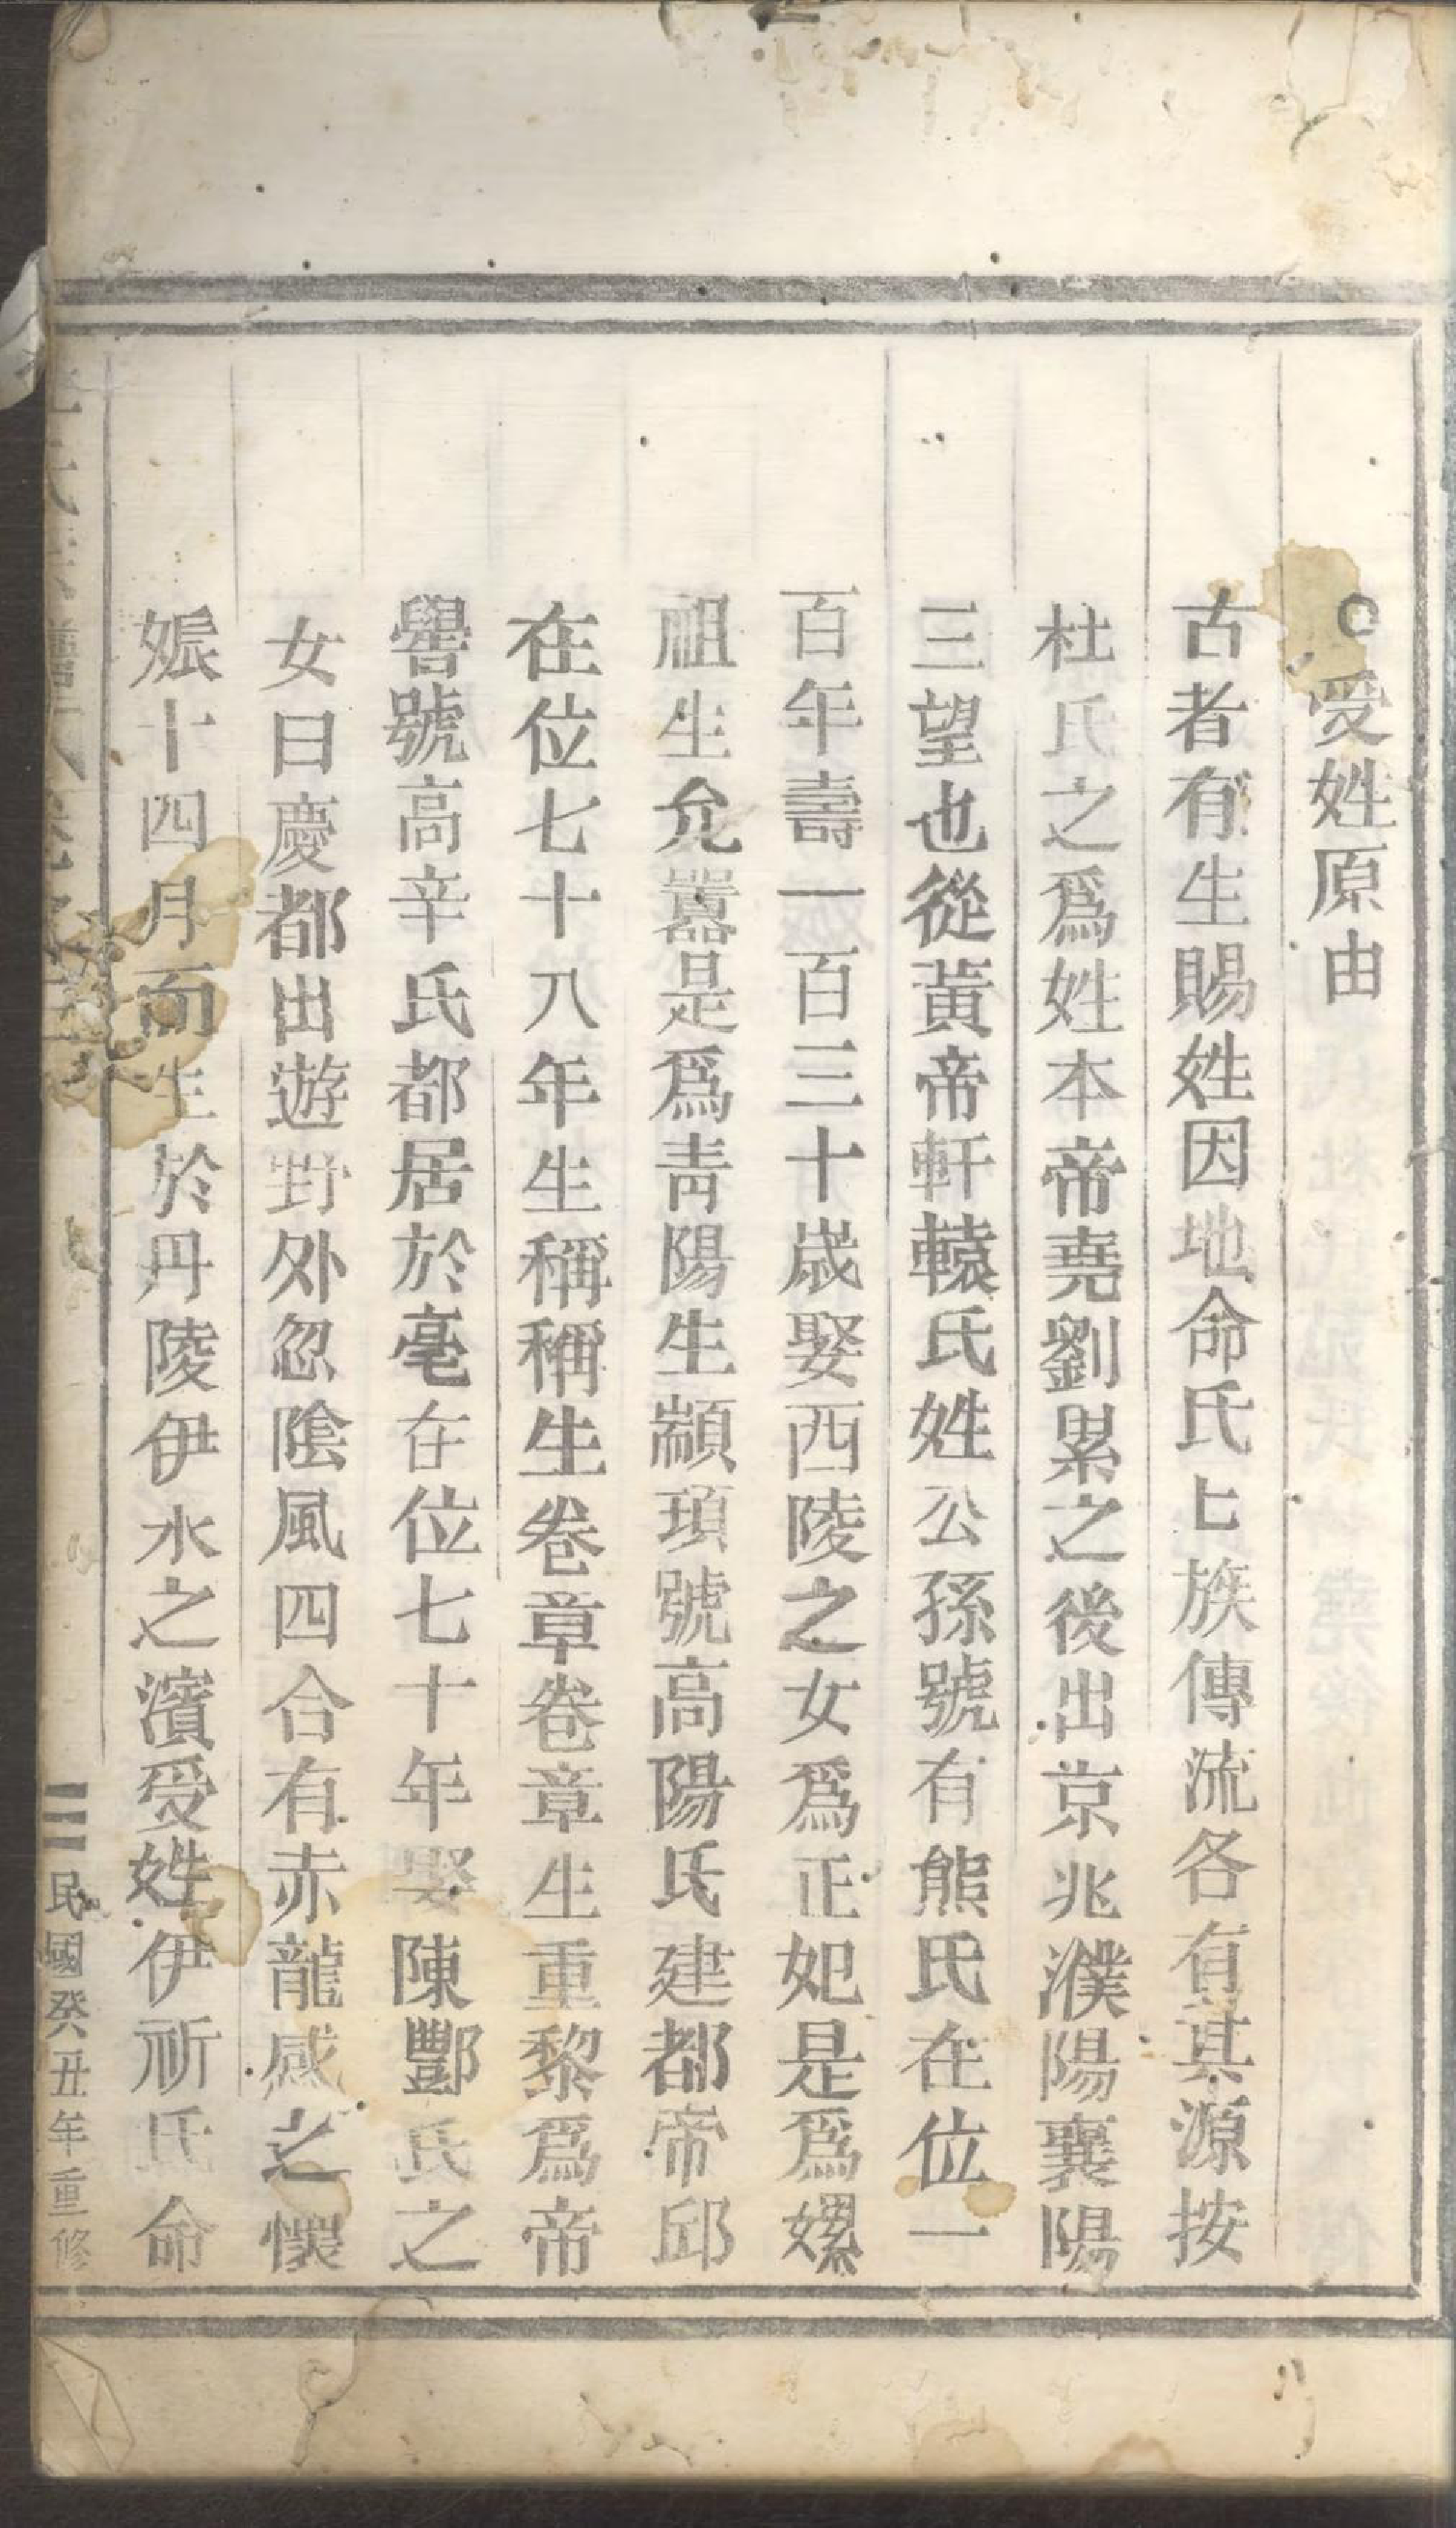 ○受姓原由
古者有生賜姓因地命氏匕族傳流各有其源按
杜氏之爲姓本帝堯劉累之後出京兆濮陽襄陽
三望也從黃帝軒轅氏姓公孫號有熊氏在位一
百年壽一百三十歲娶西陵之女爲正妃是爲嫘
祖生允囂是爲靑陽生顓頊號高陽氏建都帝邱
在位七十八年生稱稱生卷章卷章生重黎爲帝
嚳號高辛氏都居於亳在位七十年娶陳酆氏之
女曰慶都出遊野外忽陰風四合有赤龍感之懷
娠十四月而生於丹陵伊水之濱受姓伊祈氏命
三 民國癸丑年重修